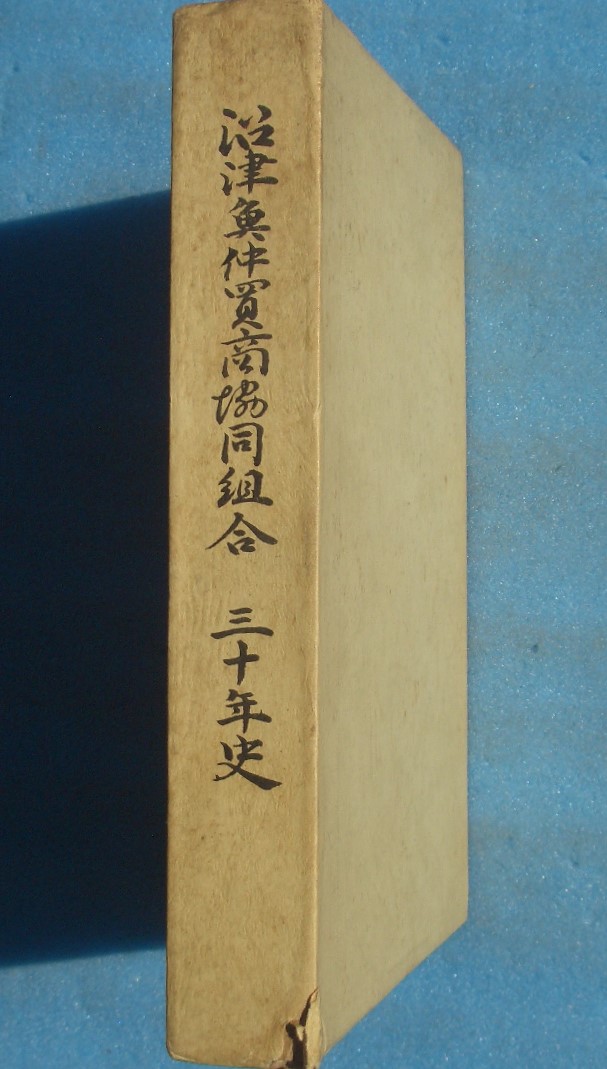 沼津魚仲買商協同組合 三十年史